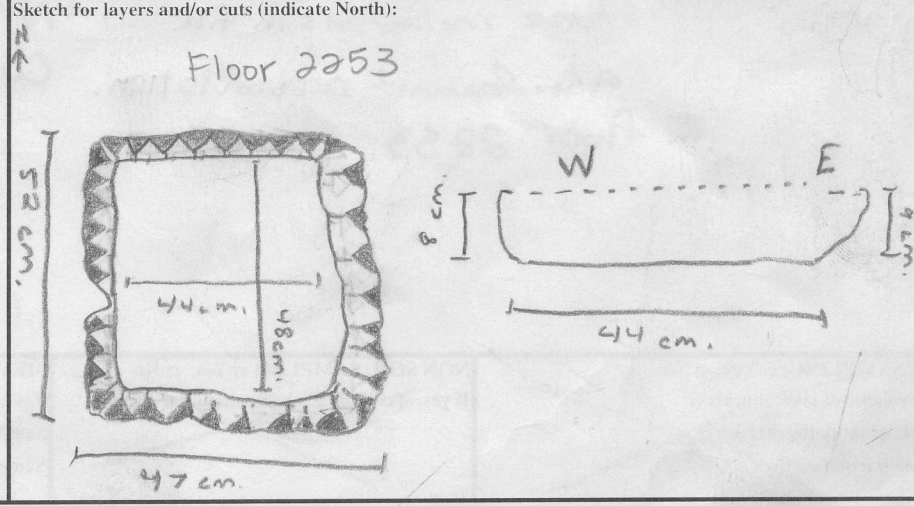 Sketch for layers and/or cuts (indicate North):
N
Floor 2253
52 cm.
44 cm.
48 cm.
47 cm.
W E
8 cm
9 cm.
44 cm.